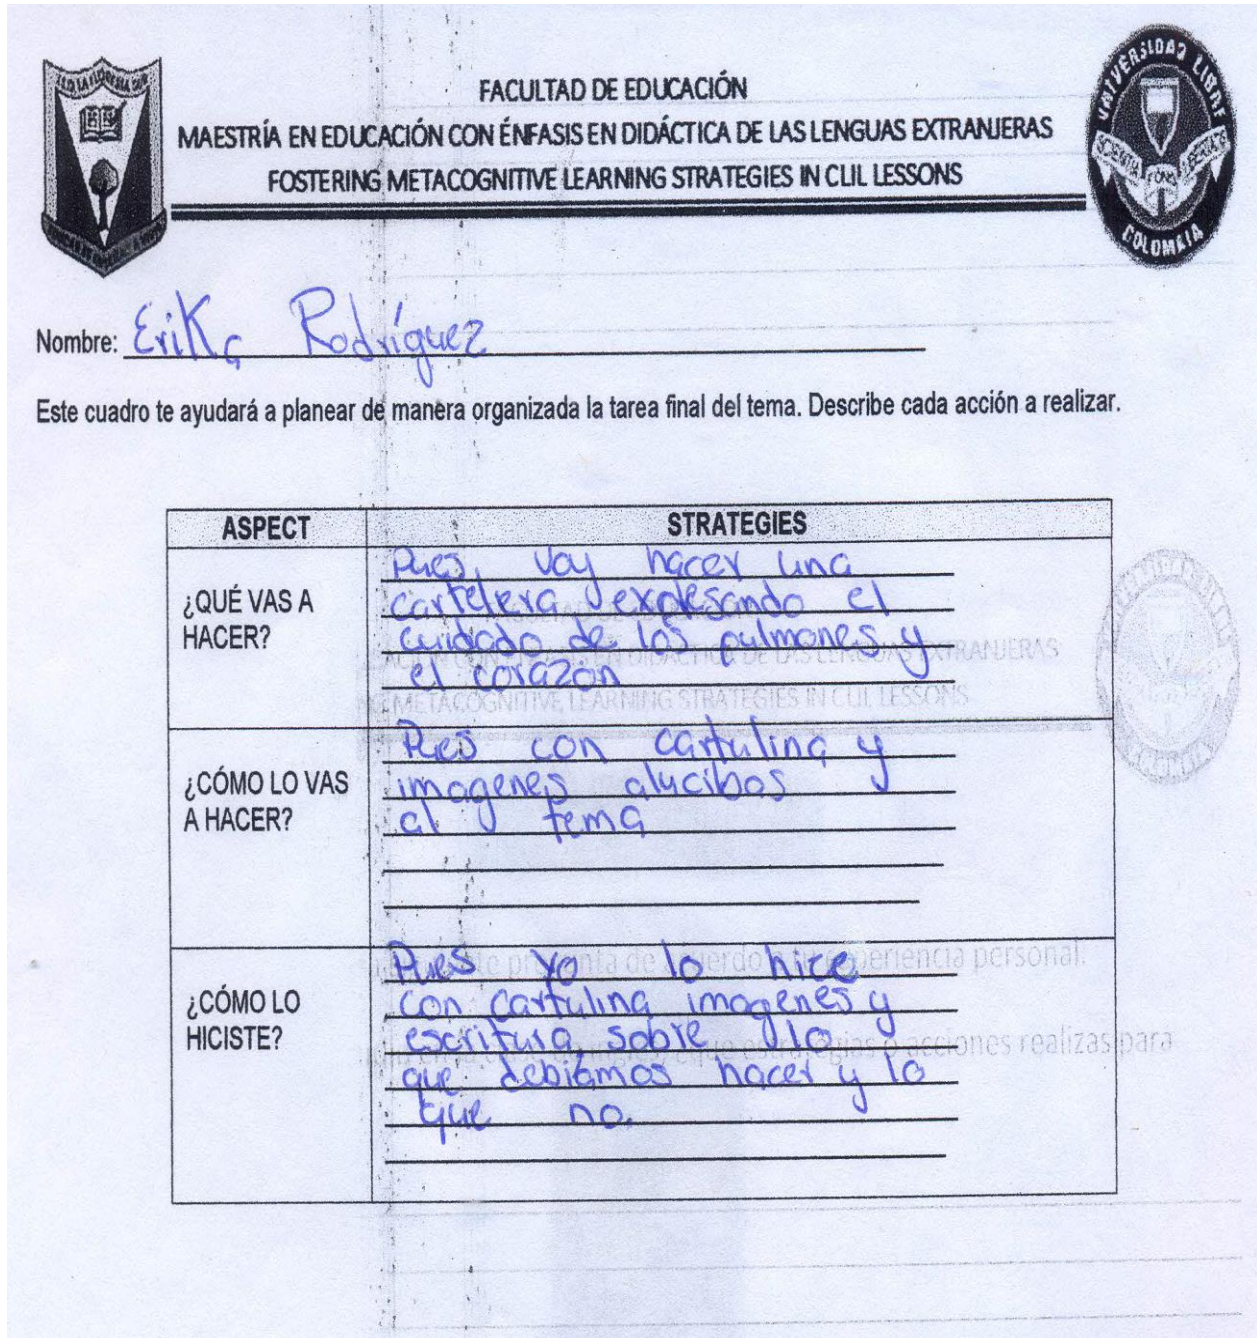 FACULTAD DE EDUCACIÓN
MAESTRÍA EN EDUCACIÓN CON ÉNFASIS EN DIDÁCTICA DE LAS LENGUAS EXTRANJERAS
FOSTERING METACOGNITIVE LEARNING STRATEGIES IN CLIL LESSONS
UNIVERSIDAD LIBRE
COLOMBIA
Nombre: Erika Rodríguez
Este cuadro te ayudará a planear de manera organizada la tarea final del tema. Describe cada acción a realizar.
ASPECT STRATEGIES
¿QUÉ VAS A
HACER?
Pues, voy hacer una
cartelera expresando el
cuidado de los pulmones y
el corazón
¿CÓMO LO VAS
A HACER?
Pues con cartulina y
imagenes alucibos
al tema
¿CÓMO LO
HICISTE?
Pues yo lo hice
con cartulina imagenes y
escritura, sobre lo
que debiamos hacer y lo
que no.